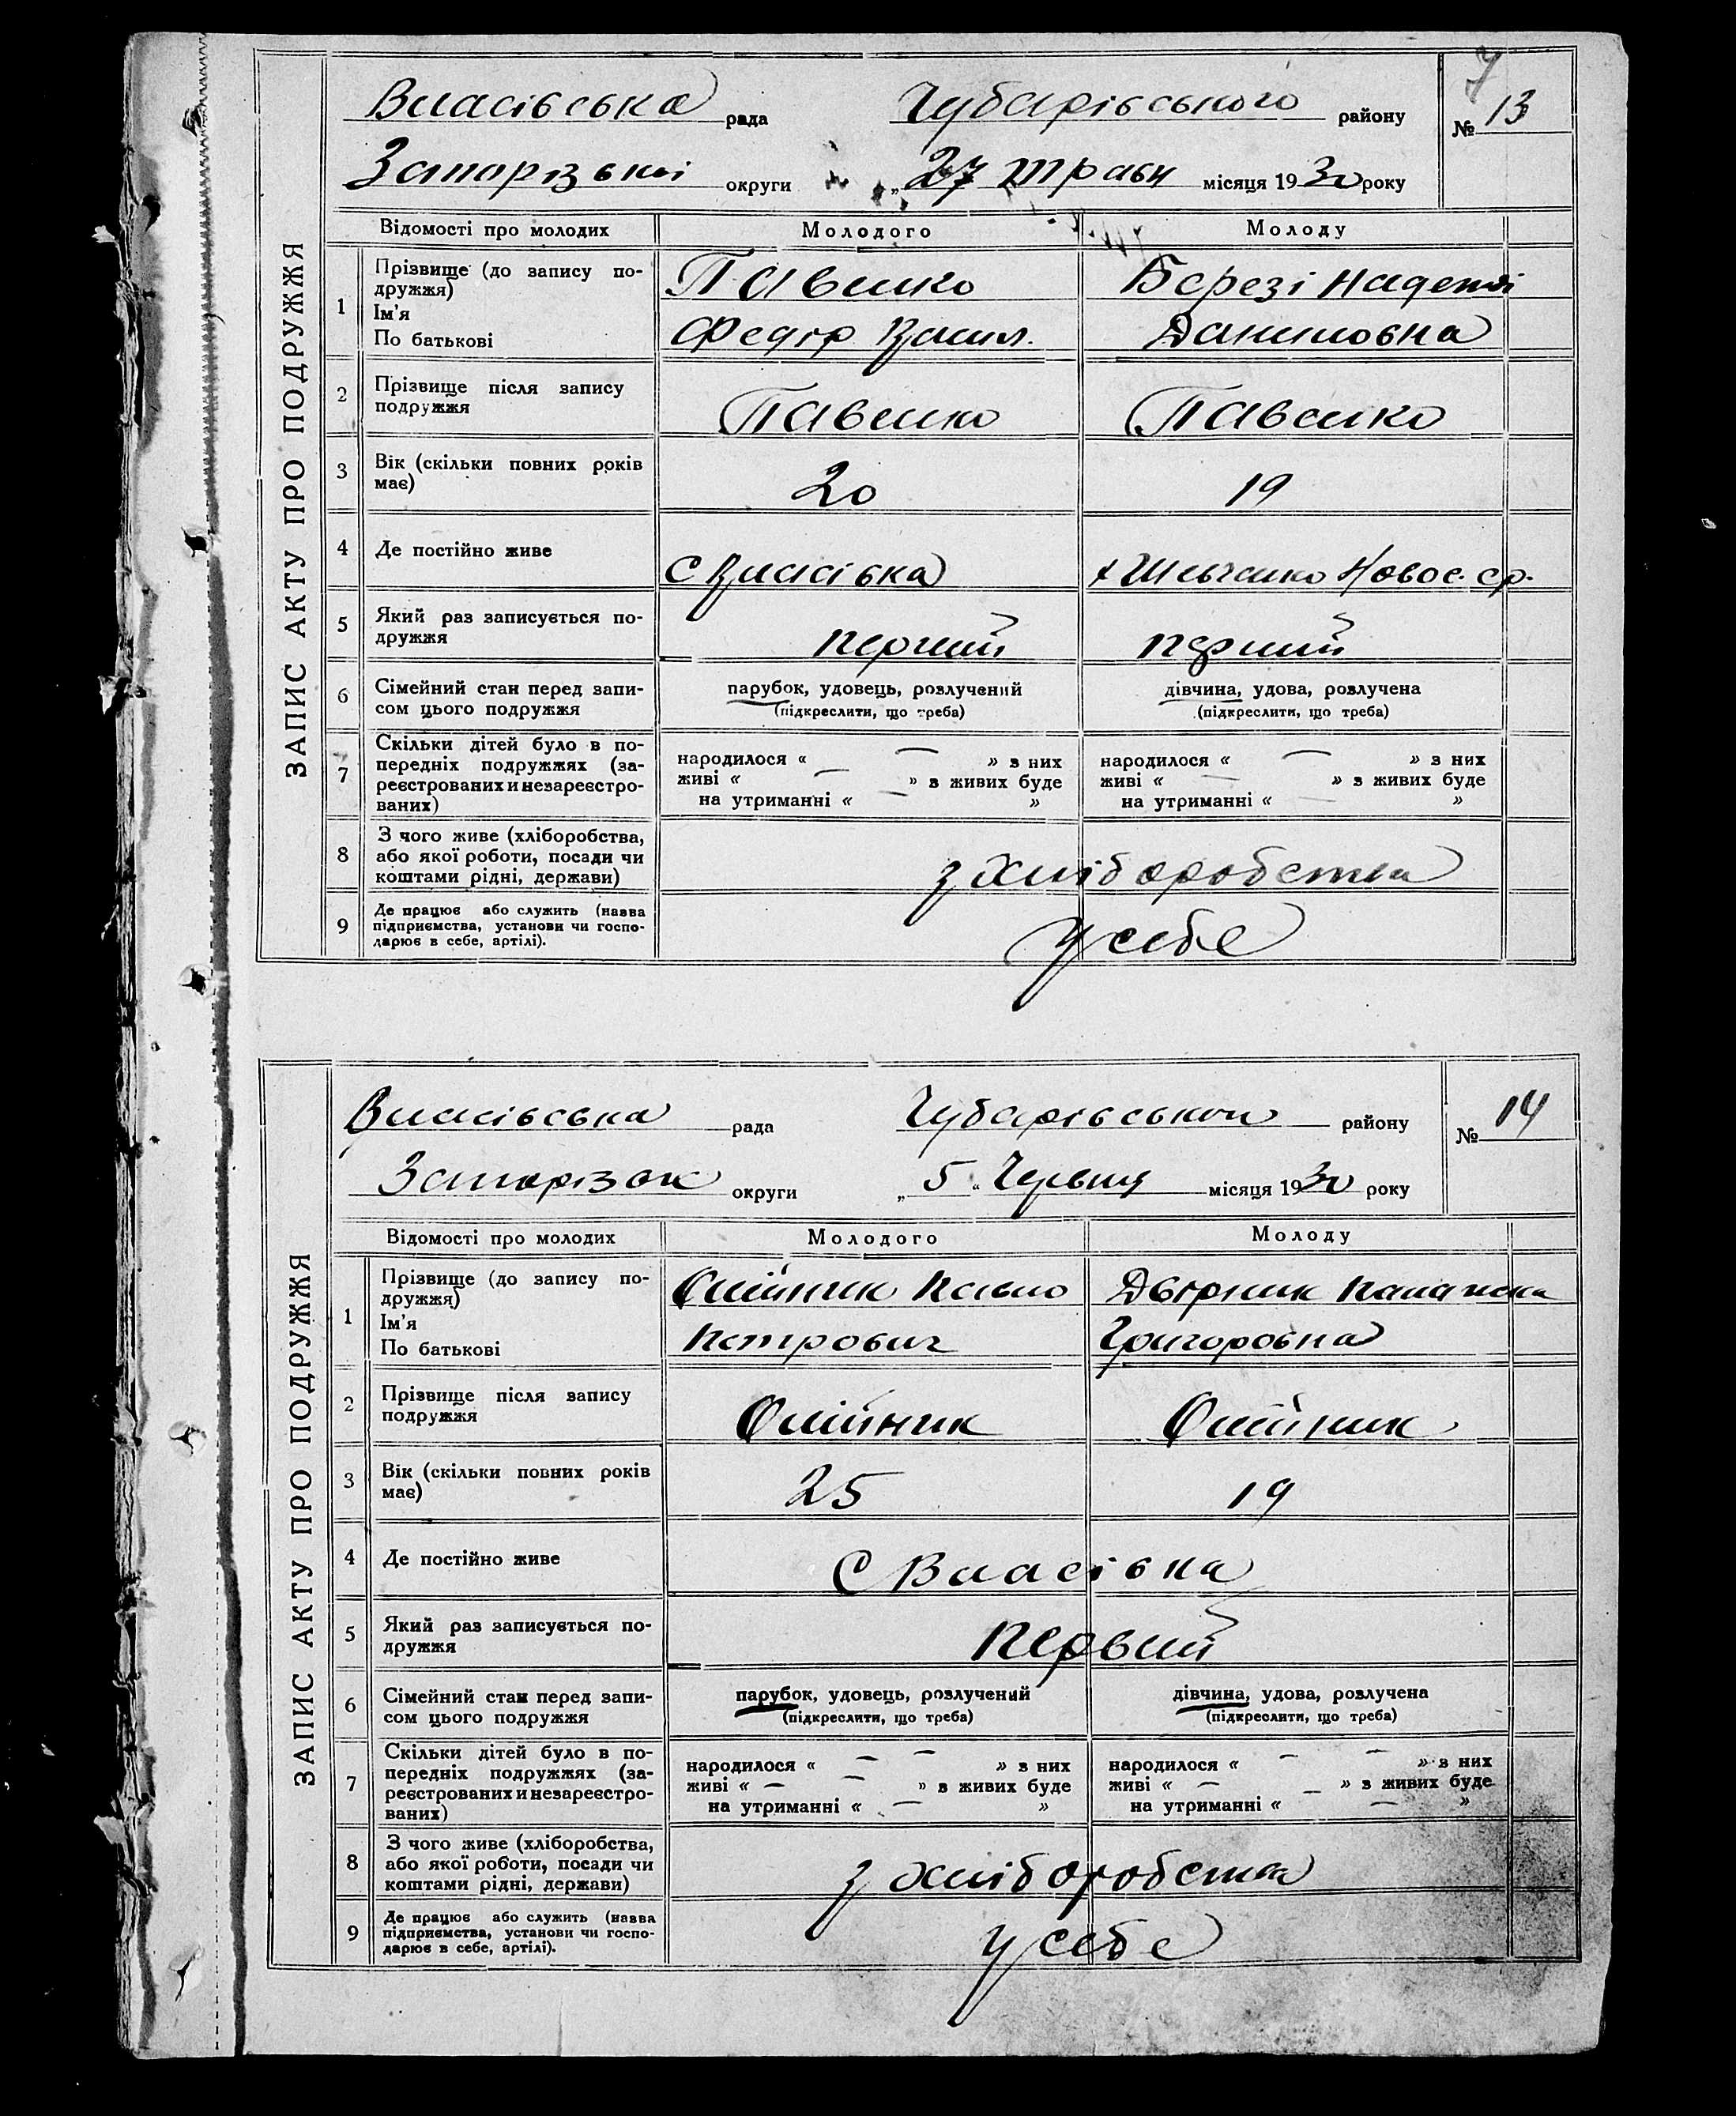 7
Власівська рада Чубарівського району № 13
Запорізької округи „27 травн місяця 1930 року
ЗАПИС АКТУ ПРО ПОДРУЖЖЯ
Відомості про молодих Молодого Молоду
1 Прізвище (до запису по-
дружжя)
Ім'я
По батькові
Павенко
Федір Васил.
Березі Надежі
Даниловна
2 Прізвище після запису
подружжя
Павенко Павенко
3 Вік (скільки повних років
має)
20 19
4 Де постійно живе
С Власівка х Шевченко Новос. ср.
5 Який раз записується по-
дружжя
перший перший
6 Сімейний стан перед запи-
сом цього подружжя
парубок, удовець, розлучений
(підкреслити, що треба)
дівчина, удова, розлучена
(підкреслити, що треба)
7 Скільки дітей було в по-
передніх подружжях (за-
реєстрованих и незареєстро-
ваних)
народилося « — » з них
живі « — » з живих буде
на утриманні « — »
народилося « — » з них
живі « — » з живих буде
на утриманні « — »
8 З чого живе (хліборобства,
або якої роботи, посади чи
коштами рідні, держави)
з хліборобства
9 Де працює або служить (назва
підприємства, установи чи госпо-
дарює в себе, артілі).
у себе
Власівська рада Чубарівського району № 14
Запорізьк округи „5" Червня місяця 1930 року
ЗАПИС АКТУ ПРО ПОДРУЖЖЯ
Відомості про молодих Молодого Молоду
1 Прізвище (до запису по-
дружжя)
Ім'я
По батькові
Олійник Павло
Петрович
Двірник Палажка
Григоровна
2 Прізвище після запису
подружжя
Олійник Олійник
3 Вік (скільки повних років
має)
25 19
4 Де постійно живе
С Власівка
5 Який раз записується по-
дружжя
первий
6 Сімейний стан перед запи-
сом цього подружжя
парубок, удовець, розлучений
(підкреслити, що треба)
дівчина, удова, розлучена
(підкреслити, що треба)
7 Скільки дітей було в по-
передніх подружжях (за-
реєстрованих и незареєстро-
ваних)
народилося « — — » з них
живі « — — » з живих буде
на утриманні « — »
народилося « — — » з них
живі « — — » з живих буде
на утриманні « — »
8 З чого живе (хліборобства,
або якої роботи, посади чи
коштами рідні, держави)
з хліборобства
9 Де працює або служить (назва
підприємства, установи чи госпо-
дарює в себе, артілі).
у себе